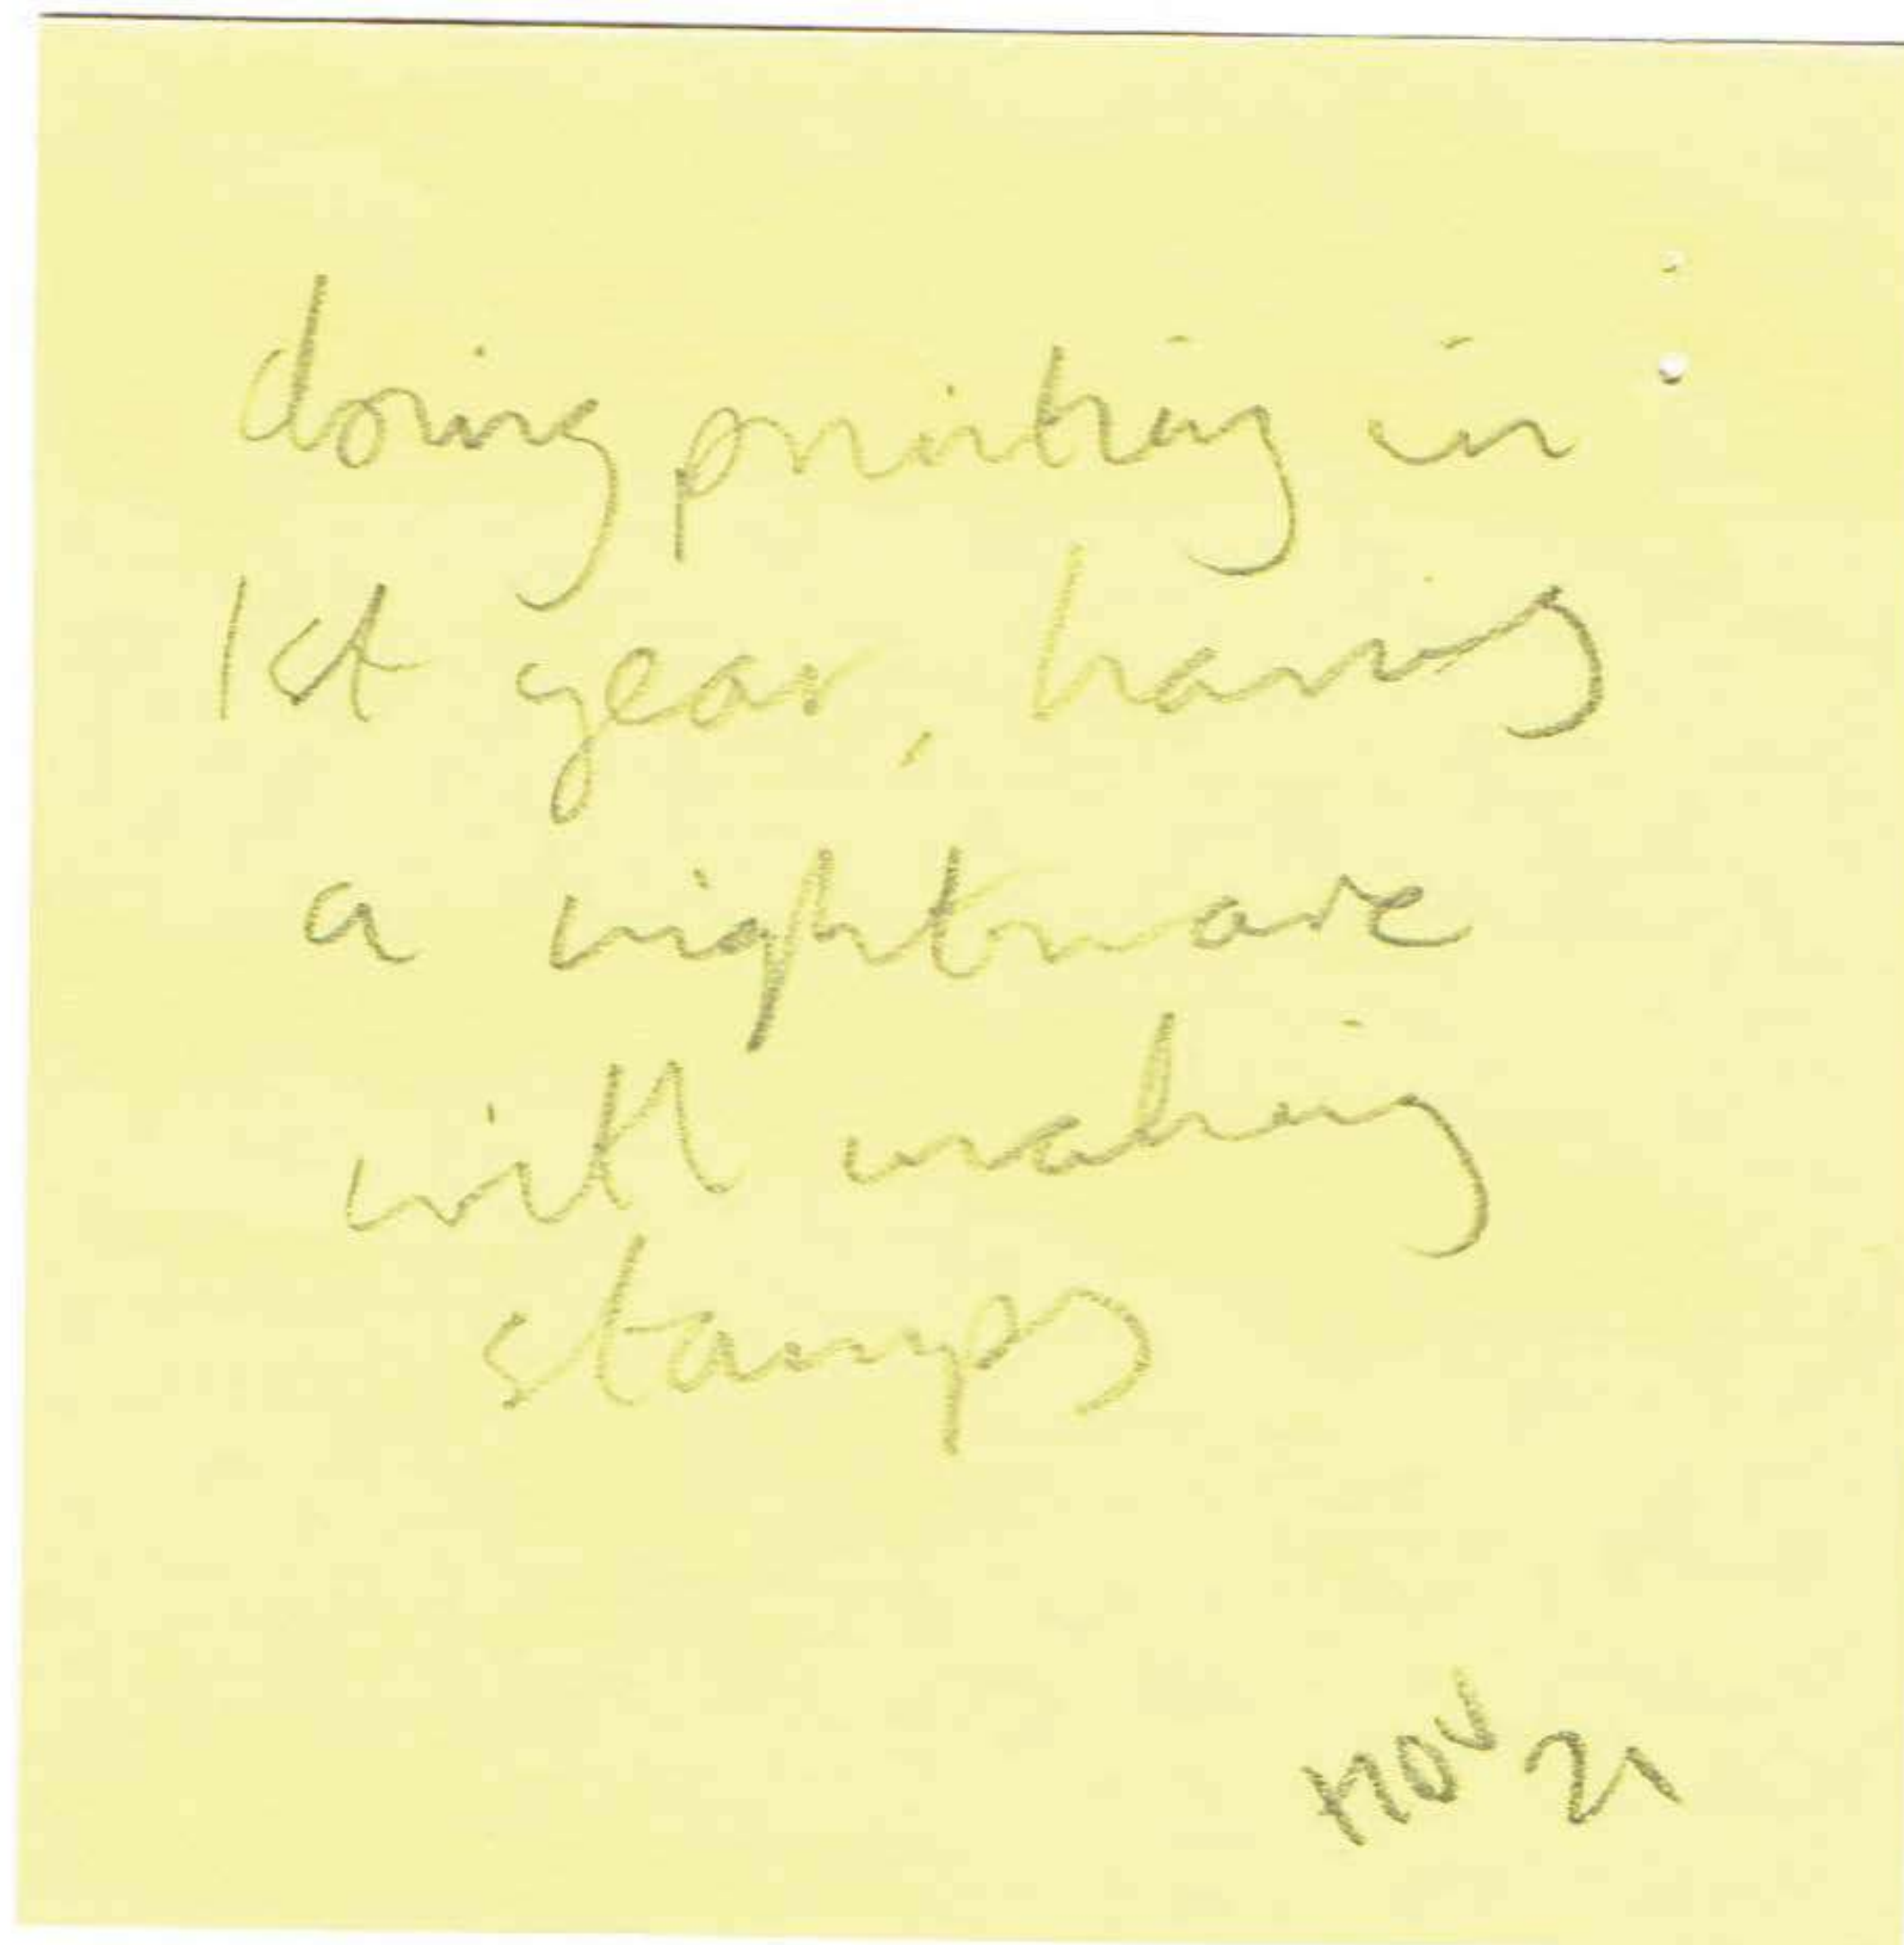 doing printing in
1st year, having
a nightmare
with making
stamps
NOV 21